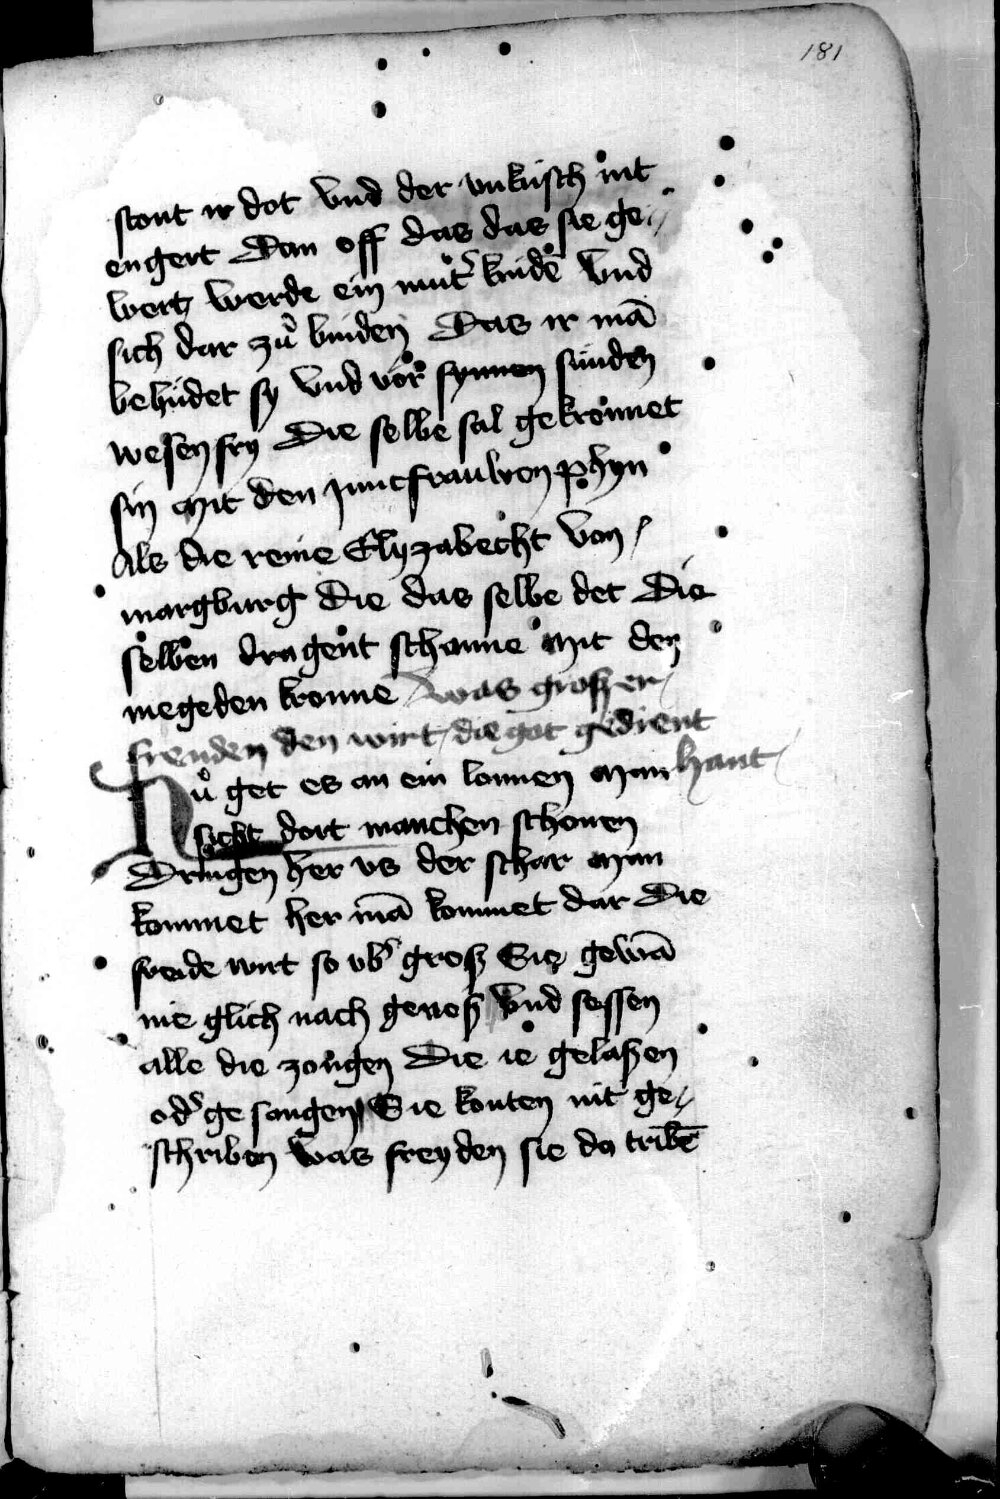 181
stont ir dot vnd der vnkusch nit
engert Dan off das das sie ge⸗
wert werde ein mut͛ kinde vnd
sich dar zů binden Das ir mā
behudet sy vnd vor synnen sunden
wesen fry Die selbe sal gekronnet
sin mit den juncfrauwen phyn
Als die reine Elyzabecht von
margburg Die das selbe det Die
selben dragent schanne mit den
megeden kronne was groszer
freuden den wirt die got gedient
hant
Nů get es an ein lonnen Man
sicht dort manchen schonen
Dringen her vs der schar Man
kommet her mā kommet dar Die
freide wirt so vb͛ grosz Sie gewā
nie glich nach genosz Vnd sessen
alle die zongen Die ie gelaszen
od͛ ge songen Sie konten nit ge⸗
schriben was freyden sie do tribē